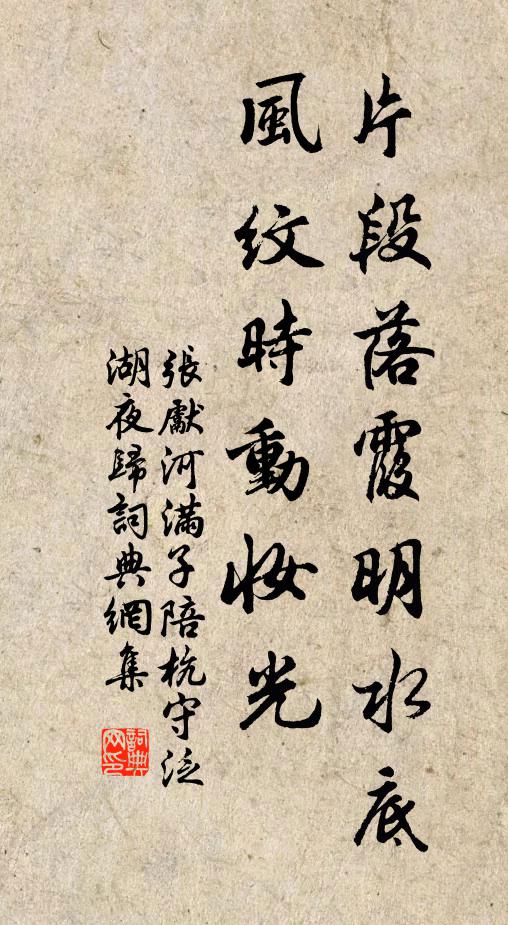 片段落霞明水底
風紋時動妝光
張獻河滿子陪杭守泛
湖夜歸詞典網集
詞典
网印